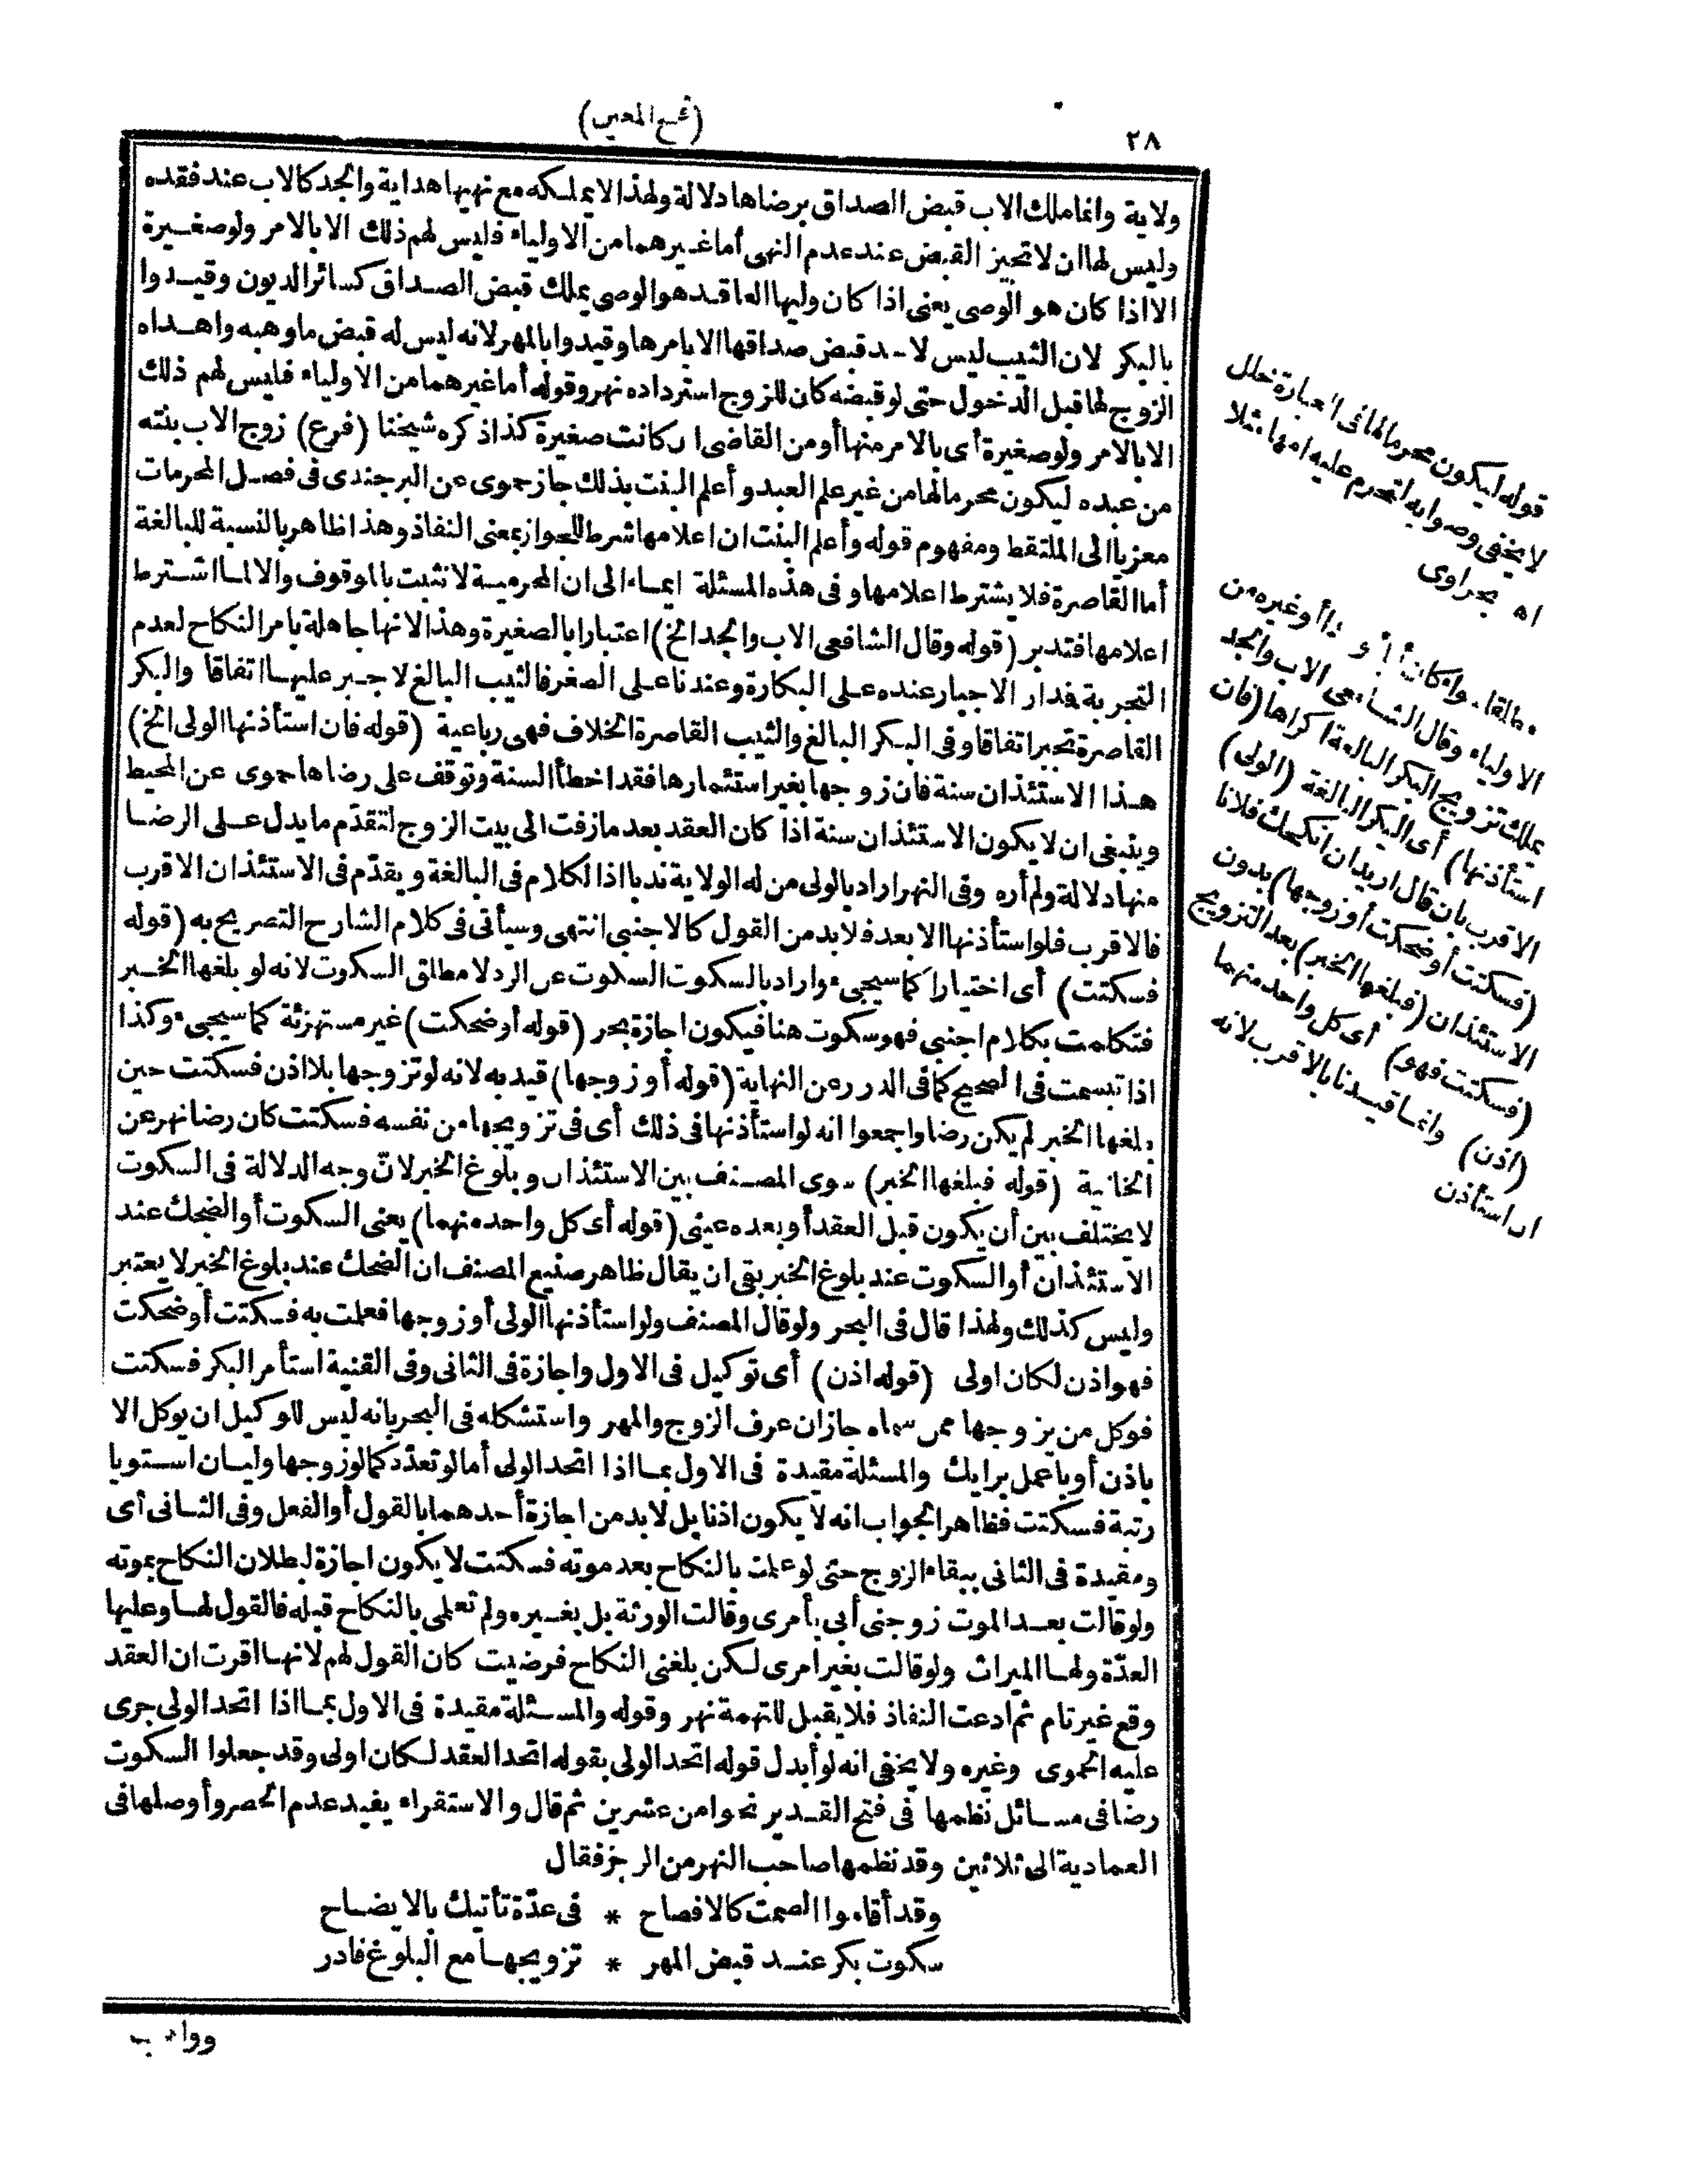 ٢٨
(فتح المعين)
ولاية وانما ملك الاب قبض الصداق برضاها دلالة ولهذا لا يملكه مع نهيها هداية والجد كالاب عند فقده
وليس لها ان لا تجيز القبض عند عدم النهى أما غيرهما من الاولياء فليس لهم ذلك الا بالامر ولو صغيرة
الا اذا كان هو الوصى يعنى اذا كان وليها العاقد هو الوصى يملك قبض الصداق كسائر الديون وقيدوا
بالبكر لان الثيب ليس لاحد قبض صداقها الا بامرها وقيدوا بالمهر لانه ليس له قبض ما وهبه واهداه
الزوج لها قبل الدخول حتى لو قبضه كان للزوج استرداده نهر وقوله أما غيرهما من الاولياء فليس لهم ذلك
الا بالامر ولو صغيرة أى بالامر منها أو من القاضى ان كانت صغيرة كذا ذكره شيخنا (فرع) زوج الاب بنته
من عبده ليكون محرما لها من غير علم العبد وأعلم البنت بذلك جاز حموى عن البرجندى فى فصل المحرمات
معزيا الى الملتقط ومفهوم قوله وأعلم البنت ان اعلامها شرط للجواز بمعنى النفاذ وهذا ظاهر بالنسبة للبالغة
أما القاصرة فلا يشترط اعلامها وفى هذه المسئلة ايماء الى ان المحرمية لا تثبت بالموقوف والا لما اشترط
اعلامها فتدبر (قوله وقال الشافعى الاب والجد الخ) اعتبارا بالصغيرة وهذا لانها جاهلة بامر النكاح لعدم
التجربة فدار الاجبار عنده على البكارة وعندنا على الصغر فالثيب البالغ لا جبر عليها اتفاقا والبكر
القاصرة تجبر اتفاقا وفى البكر البالغ والثيب القاصرة الخلاف فهى رباعية (قوله فان استأذنها الولى الخ)
هذا الاستئذان سنة فان زوجها بغير استئمارها فقد اخطأ السنة وتوقف على رضاها حموى عن المحيط
وينبغى ان لا يكون الاستئذان سنة اذا كان العقد بعد ما زفت الى بيت الزوج لتقدّم ما يدل على الرضا
منها دلالة ولم أره وفى النهر اراد بالولى من له الولاية ندبا اذ الكلام فى البالغة ويقدّم فى الاستئذان الاقرب
فالاقرب فلو استأذنها الابعد فلا بد من القول كالاجنبى انتهى وسيأتى فى كلام الشارح التصريح به (قوله
فسكتت) أى اختيارا كما سيجىء واراد بالسكوت السكوت عن الرد لا مطلق السكوت لانه لو بلغها الخبر
فتكلمت بكلام اجنبى فهو سكوت هنا فيكون اجازة بحر (قوله أو ضحكت) غير مستهزئة كما سيجىء وكذا
اذا تبسمت فى الصحيح كما فى الدرر عن النهاية (قوله أو زوجها) قيد به لانه لو تزوجها بلا اذن فسكتت حين
بلغها الخبر لم يكن رضا واجمعوا انه لو استأذنها فى ذلك أى فى تزويجها من نفسه فسكتت كان رضا نهر عن
الخانية (قوله فبلغها الخبر) سوى المصنف بين الاستئذان وبلوغ الخبر لانّ وجه الدلالة فى السكوت
لا يختلف بين أن يكون قبل العقد أو بعده عينى (قوله أى كل واحد منهما) يعنى السكوت أو الضحك عند
الاستئذان أو السكوت عند بلوغ الخبر بقى ان يقال ظاهر صنيع المصنف ان الضحك عند بلوغ الخبر لا يعتبر
وليس كذلك ولهذا قال فى البحر ولو قال المصنف ولو استأذنها الولى أو زوجها فعلمت به فسكتت أو ضحكت
فهو اذن لكان اولى (قوله اذن) أى توكيل فى الاول واجازة فى الثانى وفى القنية استأمر البكر فسكتت
فوكل من يزوجها ممن سماه جاز ان عرف الزوج والمهر واستشكله فى البحر بانه ليس للوكيل ان يوكل الا
باذن أو باعمل برايك والمسئلة مقيدة فى الاول بما اذا اتحد الولى أما لو تعدّد كما لو زوجها وليان استويا
رتبة فسكتت فظاهر الجواب انه لا يكون اذنا بل لا بد من اجازة أحدهما بالقول أو الفعل وفى الثانى أى
ومقيدة فى الثانى ببقاء الزوج حتى لو علمت بالنكاح بعد موته فسكتت لا يكون اجازة لبطلان النكاح بموته
ولو قالت بعد الموت زوجنى أبى بأمرى وقالت الورثة بل بغيره ولم تعلمى بالنكاح قبله فالقول لها وعليها
العدّة ولها الميراث ولو قالت بغير امرى لكن بلغنى النكاح فرضيت كان القول لهم لانها اقرت ان العقد
وقع غير تام ثم ادعت النفاذ فلا يقبل للتهمة نهر وقوله والمسئلة مقيدة فى الاول بما اذا اتحد الولى جرى
عليه الحموى وغيره ولا يخفى انه لو أبدل قوله اتحد الولى بقوله اتحد العقد لكان اولى وقد جعلوا السكوت
رضا فى مسائل نظمها فى فتح القدير نحوا من عشرين ثم قال والاستقراء يفيد عدم الحصر وأوصلها فى
العمادية الى ثلاثين وقد نظمها صاحب النهر من الرجز فقال
وقد أقاموا الصمت كالافصاح * فى عدّة تأتيك بالايضاح
سكوت بكر عند قبض المهر * تزويجها مع البلوغ فادر
قوله ليكون محرما لها فى العبارة خلل
لا يخفى وصوابه لتحرم عليه امها مثلا
اه بحراوى
مطلقا وان كان أبا أو جدا أو غيره من
الاولياء وقال الشافعى الاب والجد
يملك تزويج البكر البالغة اكراها (فان
استأذنها) أى البكر البالغة (الولى)
الاقرب بان قال اريد ان انكحك فلانا
(فسكتت أو ضحكت أو زوجها) بدون
الاستئذان (فبلغها الخبر) بعد التزويج
(فسكتت فهو) أى كل واحد منهما
(اذن) وانما قيدنا بالاقرب لانه
ان استأذن